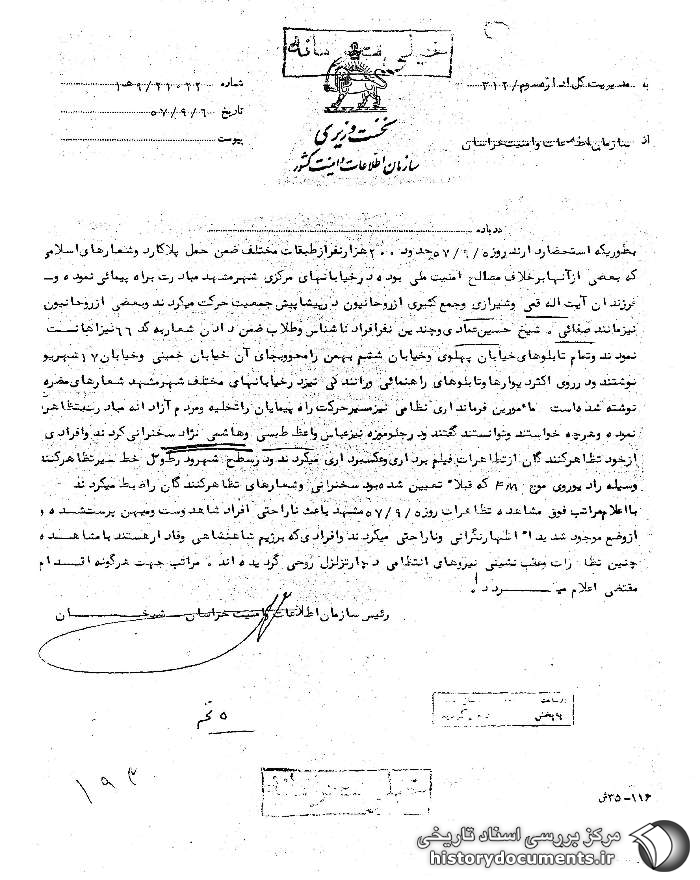 خیلی محرمانه
به مدیریت کل اداره سوم/۳۱۲
شماره ۲۱۰۲۲/۹ه‍۱
تاریخ ۵۷/۹/۶
پیوست
از سازمان اطلاعات و امنیت خراسان
نخست وزیری
سازمان اطلاعات و امنیت کشور
درباره
بطوریکه استحضار دارند روز ۵۷/۹/۵ حدود ۲۰۰ هزار نفر از طبقات مختلف ضمن حمل پلاکارد و شعارهای اسلامی
که بعضی از آنها برخلاف مصالح امنیت ملی بوده در خیابانهای مرکزی شهر مشهد مبادرت براه پیمائی نموده و
فرزندان آیت اله قمی و شیرازی و جمع کثیری از روحانیون در پیشاپیش جمعیت حرکت میکردند و بعضی از روحانیون
نیز مانند صفائی، شیخ حسین عمادی و چندین نفر افراد ناشناس و طلاب ضمن دادن شعار به کد ۶۶ نیز اهانت
نمودند و تمام تابلوهای خیابان پهلوی و خیابان ششم بهمن را محو و بجای آن خیابان خمینی و خیابان ۱۷ شهریور
نوشتند و در روی اکثر دیوارها و تابلوهای راهنمائی و رانندگی نیز در خیابانهای مختلف شهر مشهد شعارهای مضره
نوشته شده است مأمورین فرمانداری نظامی نیز مسیر حرکت راه پیمایان را تخلیه و مردم آزادانه مبادرت بتظاهرات
نموده و هرچه خواستند و توانستند گفتند و در جلو موزه نیز عباس واعظ طبسی و هاشمی نژاد سخنرانی کردند و افرادی
از خود تظاهرکنندگان از تظاهرات فیلم برداری و عکسبرداری میکردند و در سطح شهر و در طول خط سیر تظاهرکنندگان
وسیله رادیو روی موج F.M که قبلا تعیین شده بود سخنرانی و شعارهای تظاهرکنندگان را ضبط میکردند
با اعلام مراتب فوق مشاهده تظاهرات روز ۵۷/۹/۵ مشهد باعث ناراحتی افراد شاهدوست و میهن پرست شده و
از وضع موجود شدیدا اظهار نگرانی و ناراحتی میکردند و افرادی که برژیم شاهنشاهی وفادار هستند با مشاهده
چنین تظاهرات و عقب نشینی نیروهای انتظامی دچار تزلزل روحی گردیده اند. مراتب جهت هرگونه اقدام
مقتضی اعلام میگردد
رئیس سازمان اطلاعات و امنیت خراسان شیخان
۱۹۳
خیلی محرمانه
۱۱۶-۳۵ش
مرکز بررسی اسناد تاریخی
historydocuments.ir